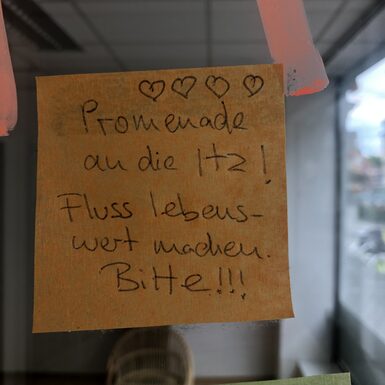 ♡♡♡♡
Promenade
an die Itz!
Fluss lebens-
wert machen.
Bitte!!!